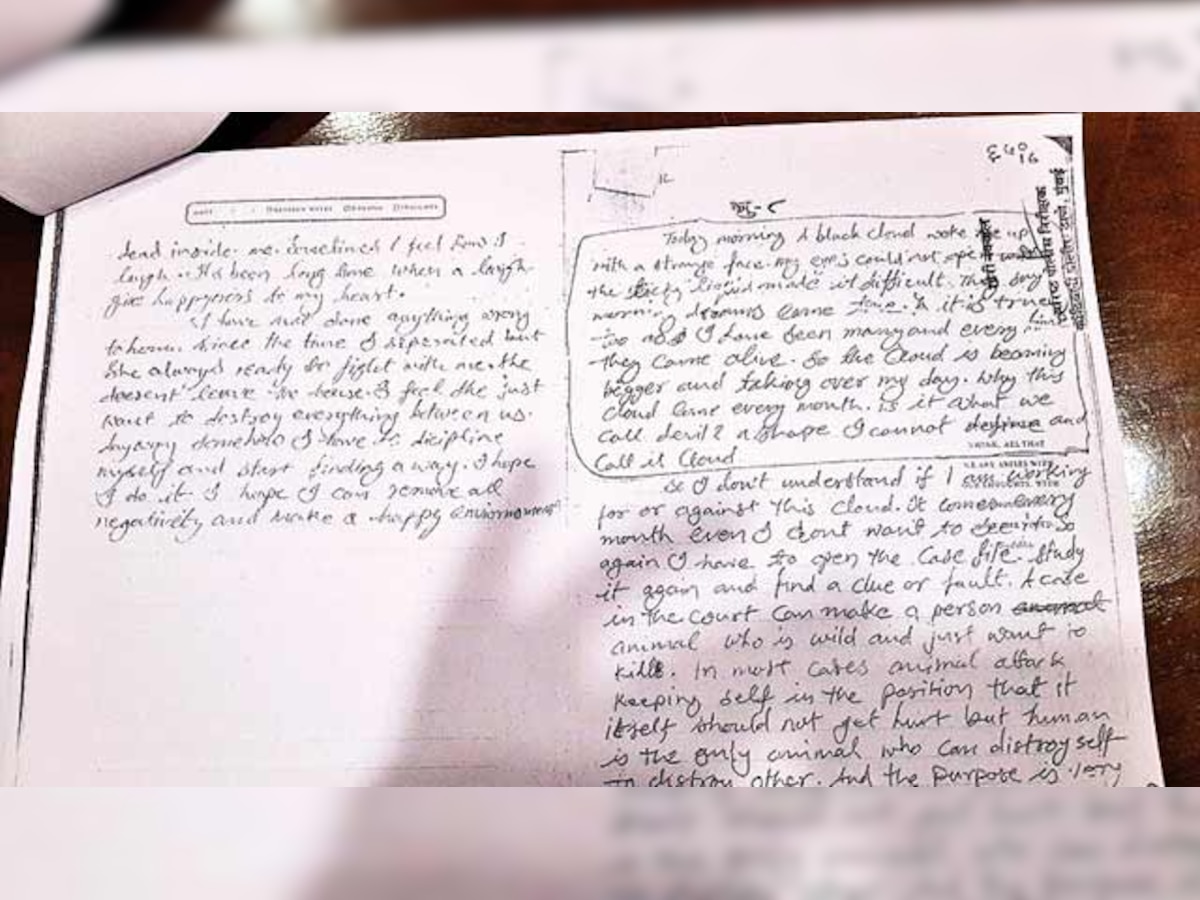 dead inside me. Sometimes I feel how I
laugh. Its been long time when a laugh
give happyness to my heart.
I have not done anything wrong
to her. since the time I seperated but
She always ready to fight with me. she
doesent leave to house. I feel she just
want to destroy everything between us.
I have to dicipline
myself and start finding a way. I hope
I do it. I hope I can remove all
negativity and make a happy enviornment
६५०
16
Today morning A black cloud woke me up
with a strange face. my eyes could not open
the liquid made it difficult. They say
morning dreams come true. & it is true
too I have seen many and every time
they came alive. So the Cloud is becoming
begger and taking over my day. Why this
cloud come every month. is it what we
call devil? a shape I cannot define and
call it Cloud
so I don't understand if I am working
for or against this cloud. It comes every
month even I dont want to So
again I have to open the case file. study
it again and find a clue or fault. A case
in the court can make a person animal
animal who is wild and just want to
kill. In most cases animal attack
Keeping self in the position that it
itself should not get hurt but human
is the only animal who can distroy self
to distroy other. And the purpose is very
वरिष्ठ पोलीस निरीक्षक